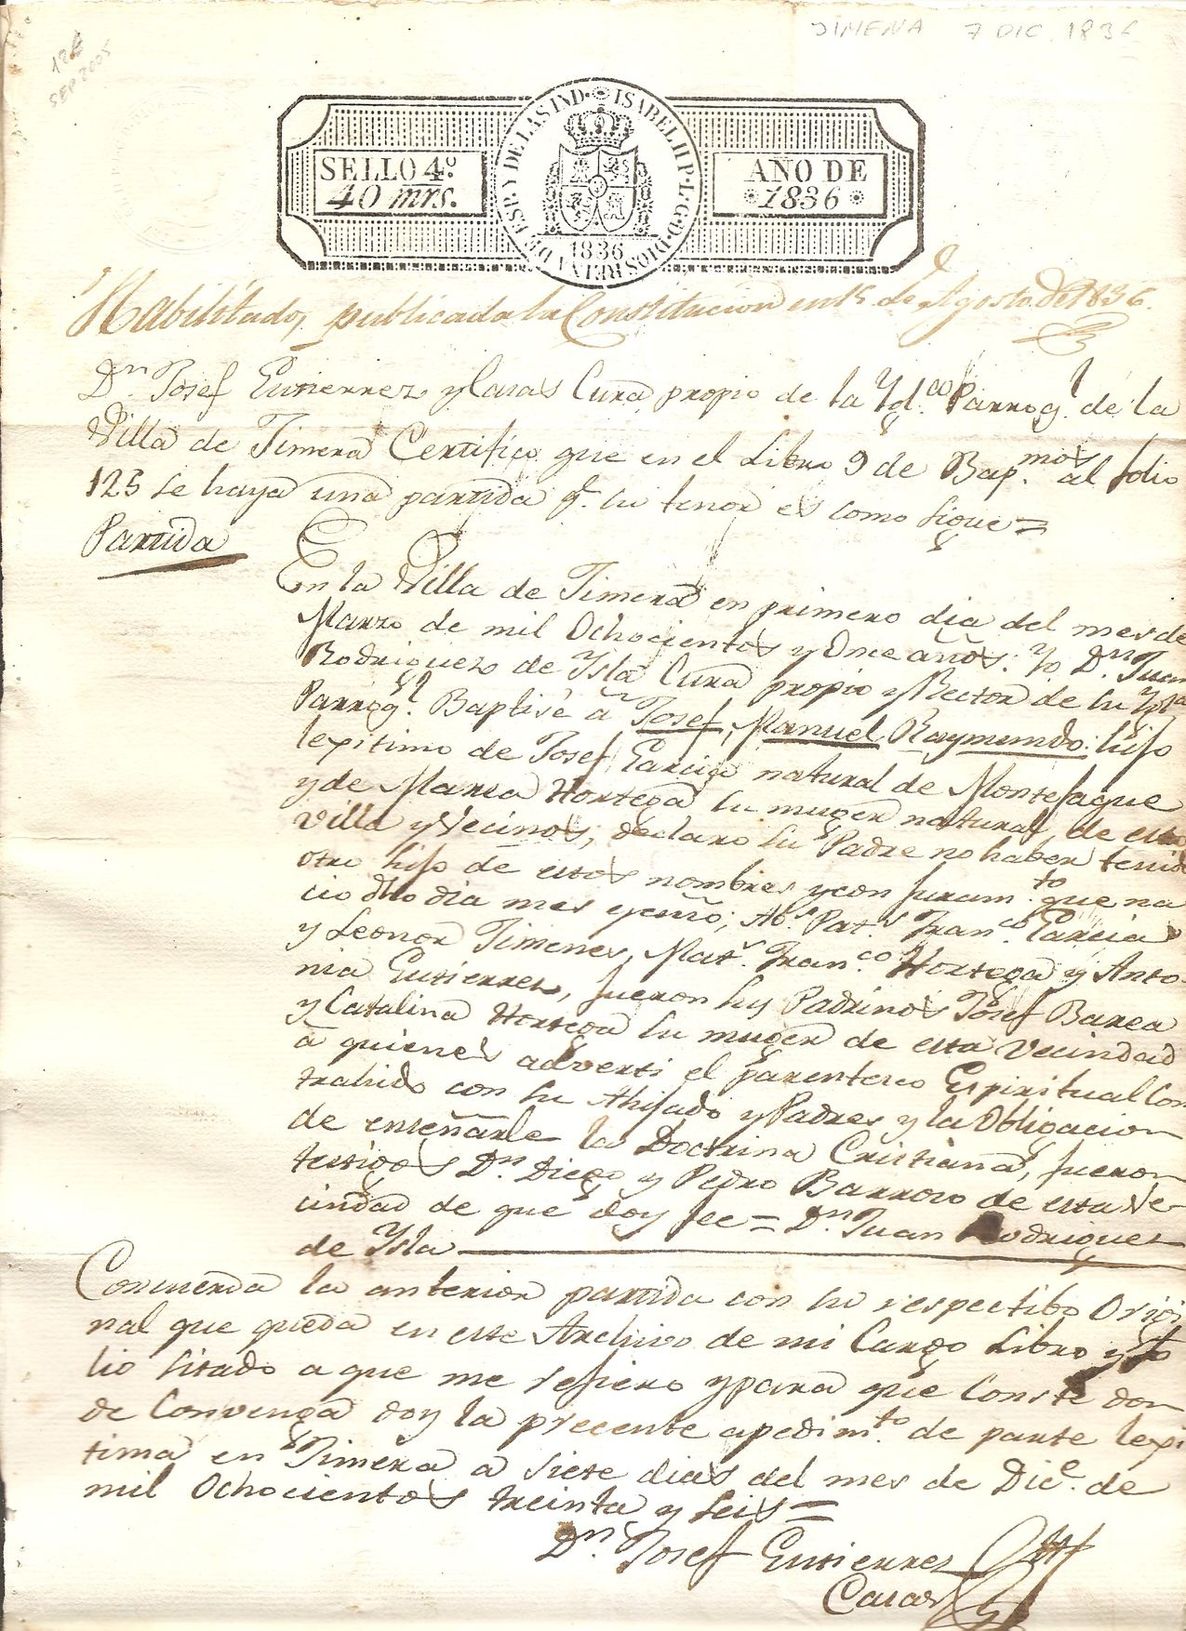 JIMENA 7 DIC. 1836
SEP 2005
ISABEL II P. L. G. D. DIOS REINA DE ESP. Y DE LAS IND.
SELLO 4º
40 mrs.
AÑO DE
1836
1836
Habilitado, publicada la Constitucion en 15 de Agosto de 1836.
Dn. Josef Gutierrez y Casas Cura propio de la Parroql. de la
Villa de Jimena Certifico que en el Libro 9 de Bapmos. al folio
125 se haya una partida q. su tenor es como sigue =
Partida
En la Villa de Jimena en primero dia del mes de
Marzo de mil Ochocientos y Once años: Yo Dn. Juan
Rodriguez de Ysla Cura propio y Rector de su Yglª
Parroql. Baptisé a Josef, Manuel Raymundo: hijo
lexitimo de Josef Garcia natural de Montefaque
y de Maria Hortega su muger natural, de esta
Villa y Vecinos; declaro su Padre no haber tenido
otro hijo de estos nombres y con juramto. que na
cio dho dia mes y año; Abs. Pats. Franco. Garcia
y Leonor Jimenes, Mats. Franco. Hortega y Anto-
nia Gutierrez, fueron sus Padrinos Josef Barea
y Catalina Hortega su muger de esta Vecindad
a quienes adverti el parentesco Espiritual Con
trahido con su Ahijado y Padres y la Obligacion
de enseñarle la Doctrina Cristiana, fueron
testigos Dn. Diego y Pedro Barroso de esta Ve-
cindad de que doy fee = Dn. Juan Rodriguez
de Ysla
Concuerda la anterior partida con su respectibo Orijí
nal que queda en este Archivo de mi Cargo Libro y fo
lio sitado a que me refiero y para que Conste don
de Convenga doy la precente a pedimto. de parte lexi
tima en Jimena a siete dias del mes de Dice. de
mil Ochocientos treinta y seis =
Dn. Josef Gutierrez
Casas